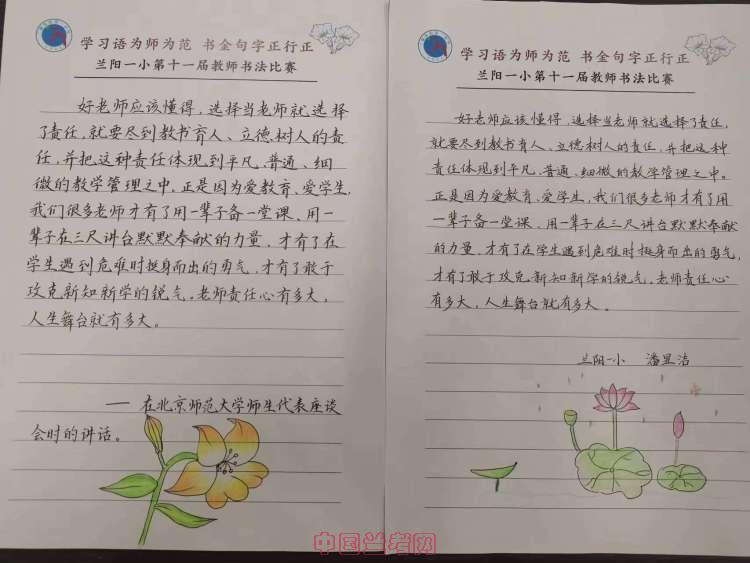 学习语为师为范 书金句字正行正
兰阳一小第十一届教师书法比赛
好老师应该懂得，选择当老师就选择
了责任，就要尽到教书育人、立德树人的责
任，并把这种责任体现到平凡、普通、细
微的教学管理之中。正是因为爱教育、爱学生，
我们很多老师才有了用一辈子备一堂课、用一
辈子在三尺讲台默默奉献的力量，才有了在
学生遇到危难时挺身而出的勇气，才有了敢于
攻克新知新学的锐气。老师责任心有多大，
人生舞台就有多大。
—— 在北京师范大学师生代表座谈
会时的讲话。
学习语为师为范 书金句字正行正
兰阳一小第十一届教师书法比赛
好老师应该懂得，选择当老师就选择了责任，
就要尽到教书育人、立德树人的责任，并把这种
责任体现到平凡、普通、细微的教学管理之中。
正是因为爱教育、爱学生，我们很多老师才有了用
一辈子备一堂课、用一辈子在三尺讲台默默奉献
的力量，才有了在学生遇到危难时挺身而出的勇气，
才有了敢于攻克新知新学的锐气。老师责任心
有多大，人生舞台就有多大。
兰阳一小 潘显洁
中国兰考网